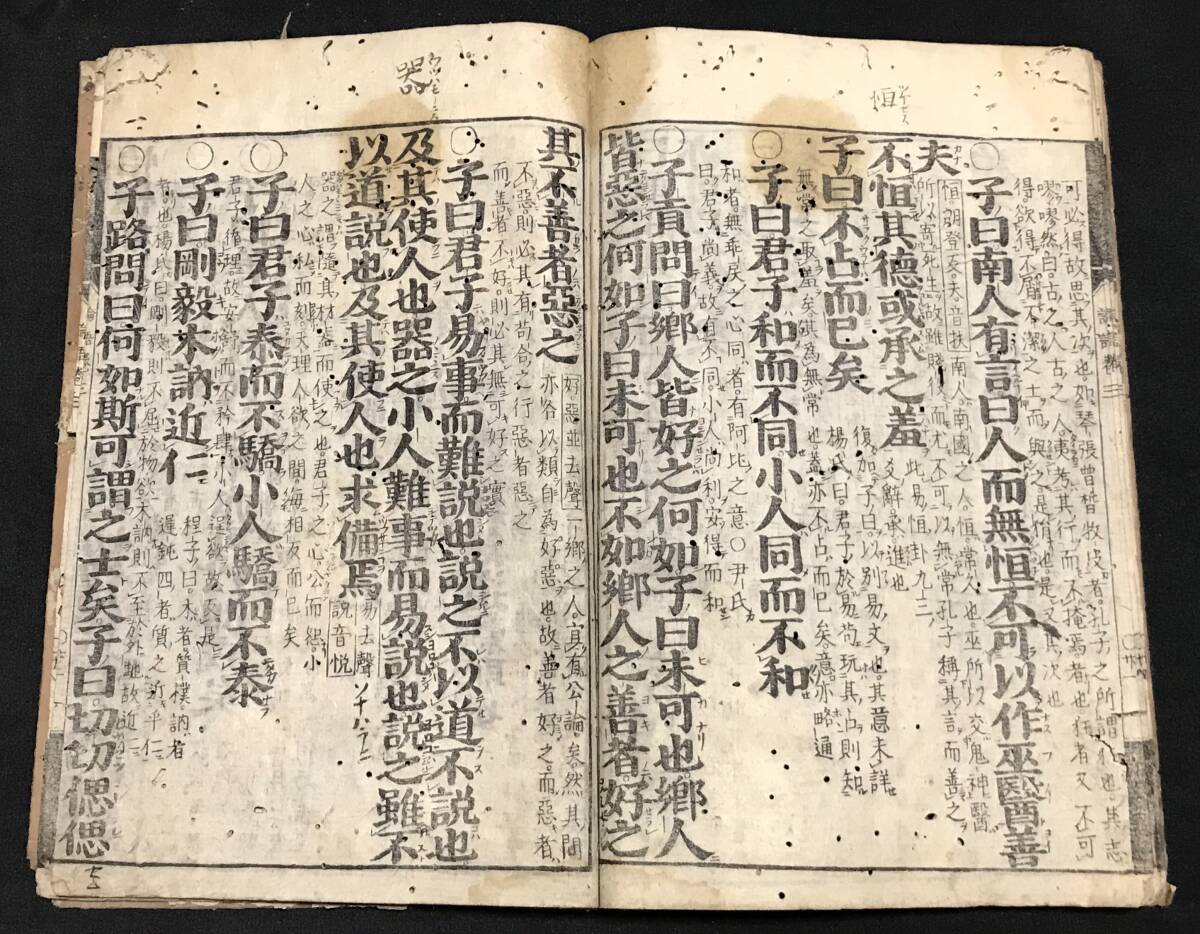 恒
可必得故思其次也。如琴張曾晳牧皮者。孔子之所謂狂也。其志
嘐嘐然曰。古之人古之人。夷考其行而不掩焉者也。狂者又不可
得。欲得不屑不潔之士而與之。是狷也。是又其次也
〇子曰南人有言曰人而無恒不可以作巫醫善
夫
恒胡登反。夫音扶。南人。南國之人。恒常久也。巫所以交鬼神。醫
所以寄死生。故雖賤役。而尤不可以無常。孔子稱其言而善之
不恒其德或承之羞
此易恒卦九三
爻辭。承進也
子曰不占而已矣
復加子曰。以別易文也。其意未詳
楊氏曰。君子於易。苟玩其占。則知
無常之取羞矣。其為無常
也。蓋亦不占而已矣。意亦略通
〇子曰君子和而不同。小人同而不和
和者。無乖戾之心。同者。有阿比之意。〇尹氏
曰。君子尚義。故有不同。小人尚利。安得而和
〇子貢問曰鄉人皆好之何如子曰未可也鄉人
皆惡之何如子曰未可也不如鄉人之善者。好之
器
其不善者惡之
好惡並去聲 一鄉之人。宜有公論矣。然其間
亦各以類自為好惡也。故善者好之。而惡者
不惡。則必其有苟合之行。惡者惡之
而善者不好。則必其無可好之實
〇子曰君子易事而難說也說之不以道不說也
及其使人也器之小人難事而易說也說之雖不
以道說也及其使人也求備焉
易去聲
說音悅
器之。謂隨其材器而使之也。君子之心。公而恕。小
人之心。私而刻。天理人欲之間。每相反而已矣
〇子曰君子泰而不驕小人驕而不泰
君子循理。故安舒而不矜肆。小人
逞欲。故反是
〇子曰。剛毅木訥近仁
程子曰。木者。質樸。訥者
遲鈍。四者。質之近乎仁
者也。楊氏曰。剛毅則不屈於物欲。木訥則不至於外馳。故近仁
〇子路問曰何如斯可謂之士矣子曰。切切偲偲